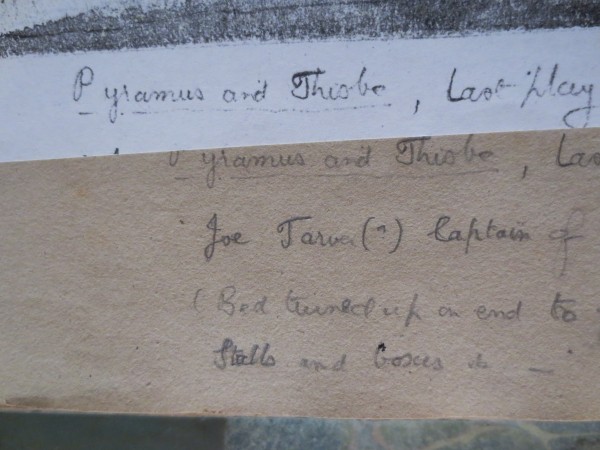 Pyramus and Thisbe, Last play
Pyramus and Thisbe, Las
Joe Tarver(?) Captain of
(Bed turned up on end to
Stalls and boxes